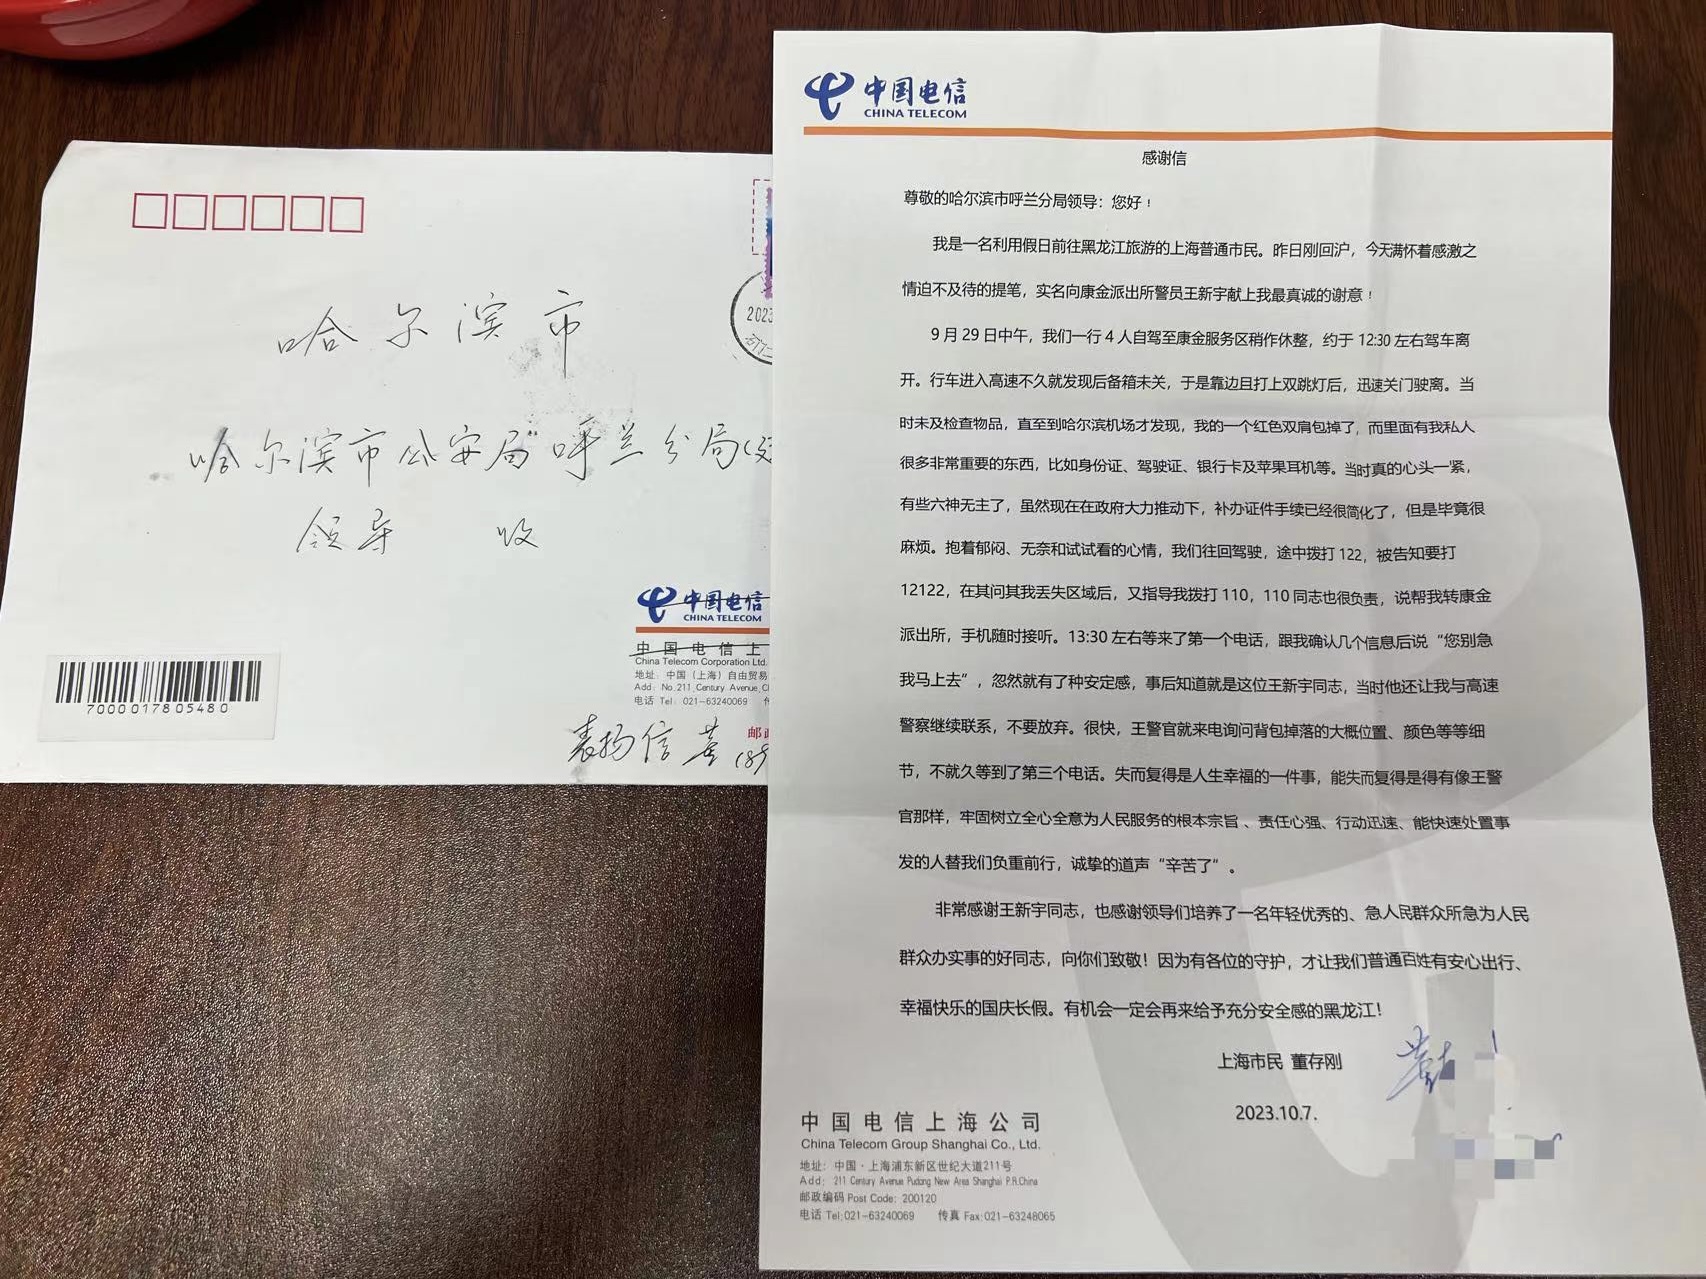 哈尔滨市
哈尔滨市公安局"呼兰分局
领导 收
中国电信
CHINA TELECOM
中国电信上
China Telecom Corporation Ltd.
地址：中国（上海）自由贸易
Add: No.211, Century Avenue, C
电话 Tel: 021-63240069
表扬信 董
7000017805480
2023
中国电信
CHINA TELECOM
感谢信
尊敬的哈尔滨市呼兰分局领导：您好！
我是一名利用假日前往黑龙江旅游的上海普通市民。昨日刚回沪，今天满怀着感激之
情迫不及待的提笔，实名向康金派出所警员王新宇献上我最真诚的谢意！
9月29日中午，我们一行4人自驾至康金服务区稍作休整，约于12:30左右驾车离
开。行车进入高速不久就发现后备箱未关，于是靠边且打上双跳灯后，迅速关门驶离。当
时未及检查物品，直至到哈尔滨机场才发现，我的一个红色双肩包掉了，而里面有我私人
很多非常重要的东西，比如身份证、驾驶证、银行卡及苹果耳机等。当时真的心头一紧，
有些六神无主了，虽然现在在政府大力推动下，补办证件手续已经很简化了，但是毕竟很
麻烦。抱着郁闷、无奈和试试看的心情，我们往回驾驶，途中拨打122，被告知要打
12122，在其问其我丢失区域后，又指导我拨打110，110同志也很负责，说帮我转康金
派出所，手机随时接听。13:30左右等来了第一个电话，跟我确认几个信息后说“您别急
我马上去”，忽然就有了种安定感，事后知道就是这位王新宇同志，当时他还让我与高速
警察继续联系，不要放弃。很快，王警官就来电询问背包掉落的大概位置、颜色等等细
节，不就久等到了第三个电话。失而复得是人生幸福的一件事，能失而复得是得有像王警
官那样，牢固树立全心全意为人民服务的根本宗旨、责任心强、行动迅速、能快速处置事
发的人替我们负重前行，诚挚的道声“辛苦了”。
非常感谢王新宇同志，也感谢领导们培养了一名年轻优秀的、急人民群众所急为人民
群众办实事的好同志，向你们致敬！因为有各位的守护，才让我们普通百姓有安心出行、
幸福快乐的国庆长假。有机会一定会再来给予充分安全感的黑龙江！
上海市民 董存刚
2023.10.7.
中国电信上海公司
China Telecom Group Shanghai Co., Ltd.
地址：中国·上海浦东新区世纪大道211号
Add: 211 Century Avenue Pudong New Area Shanghai P.R.China
邮政编码 Post Code: 200120
电话 Tel:021-63240069 传真 Fax:021-63248065